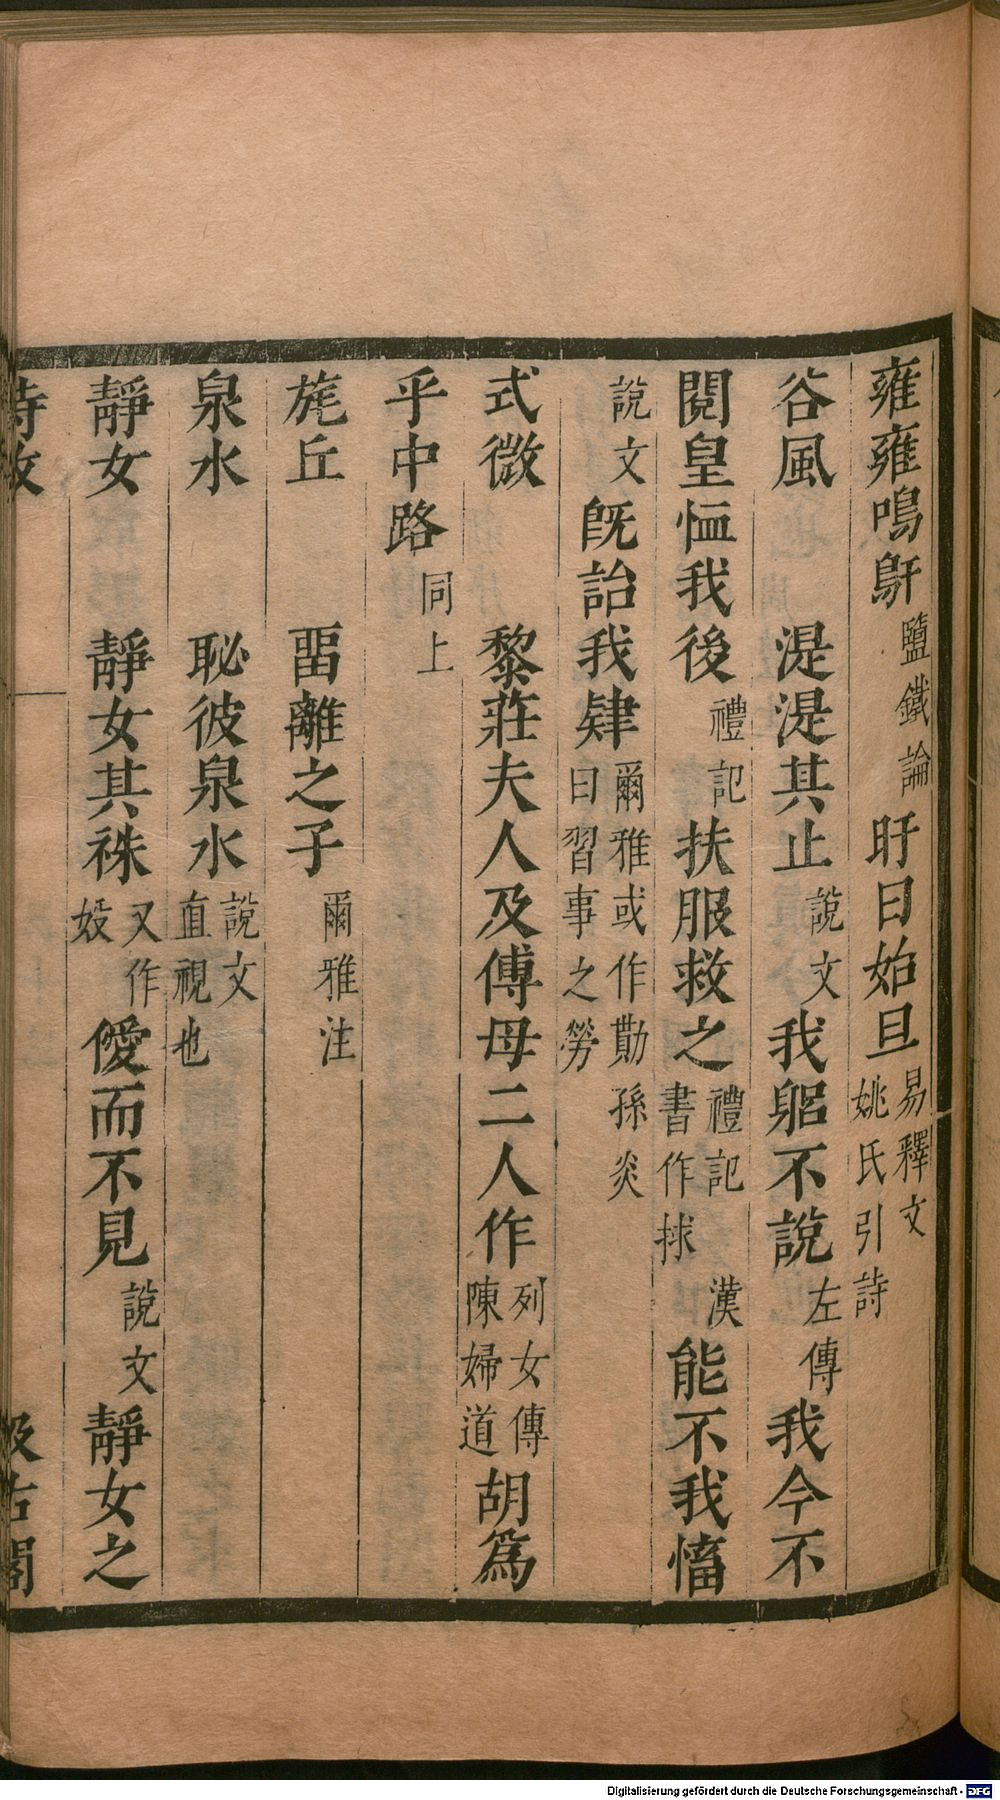 雍雍鳴鳱鹽鐵論旴日始旦易釋文姚氏引詩
谷風　湜湜其止說文我躳不說左傳我今不
閱皇恤我後禮記扶服救之禮記漢書作捄能不我慉
說文旣詒我肄爾雅或作勩孫炎曰習事之勞
式微　黎莊夫人及傅母二人作列女傳陳婦道胡爲
乎中路同上
旄丘　畱離之子爾雅注
泉水　䀣彼泉水說文直視也
靜女　靜女其袾又作㚲僾而不見說文靜女之
詩攷　汲古閣
Digitalisierung gefördert durch die Deutsche Forschungsgemeinschaft - DFG